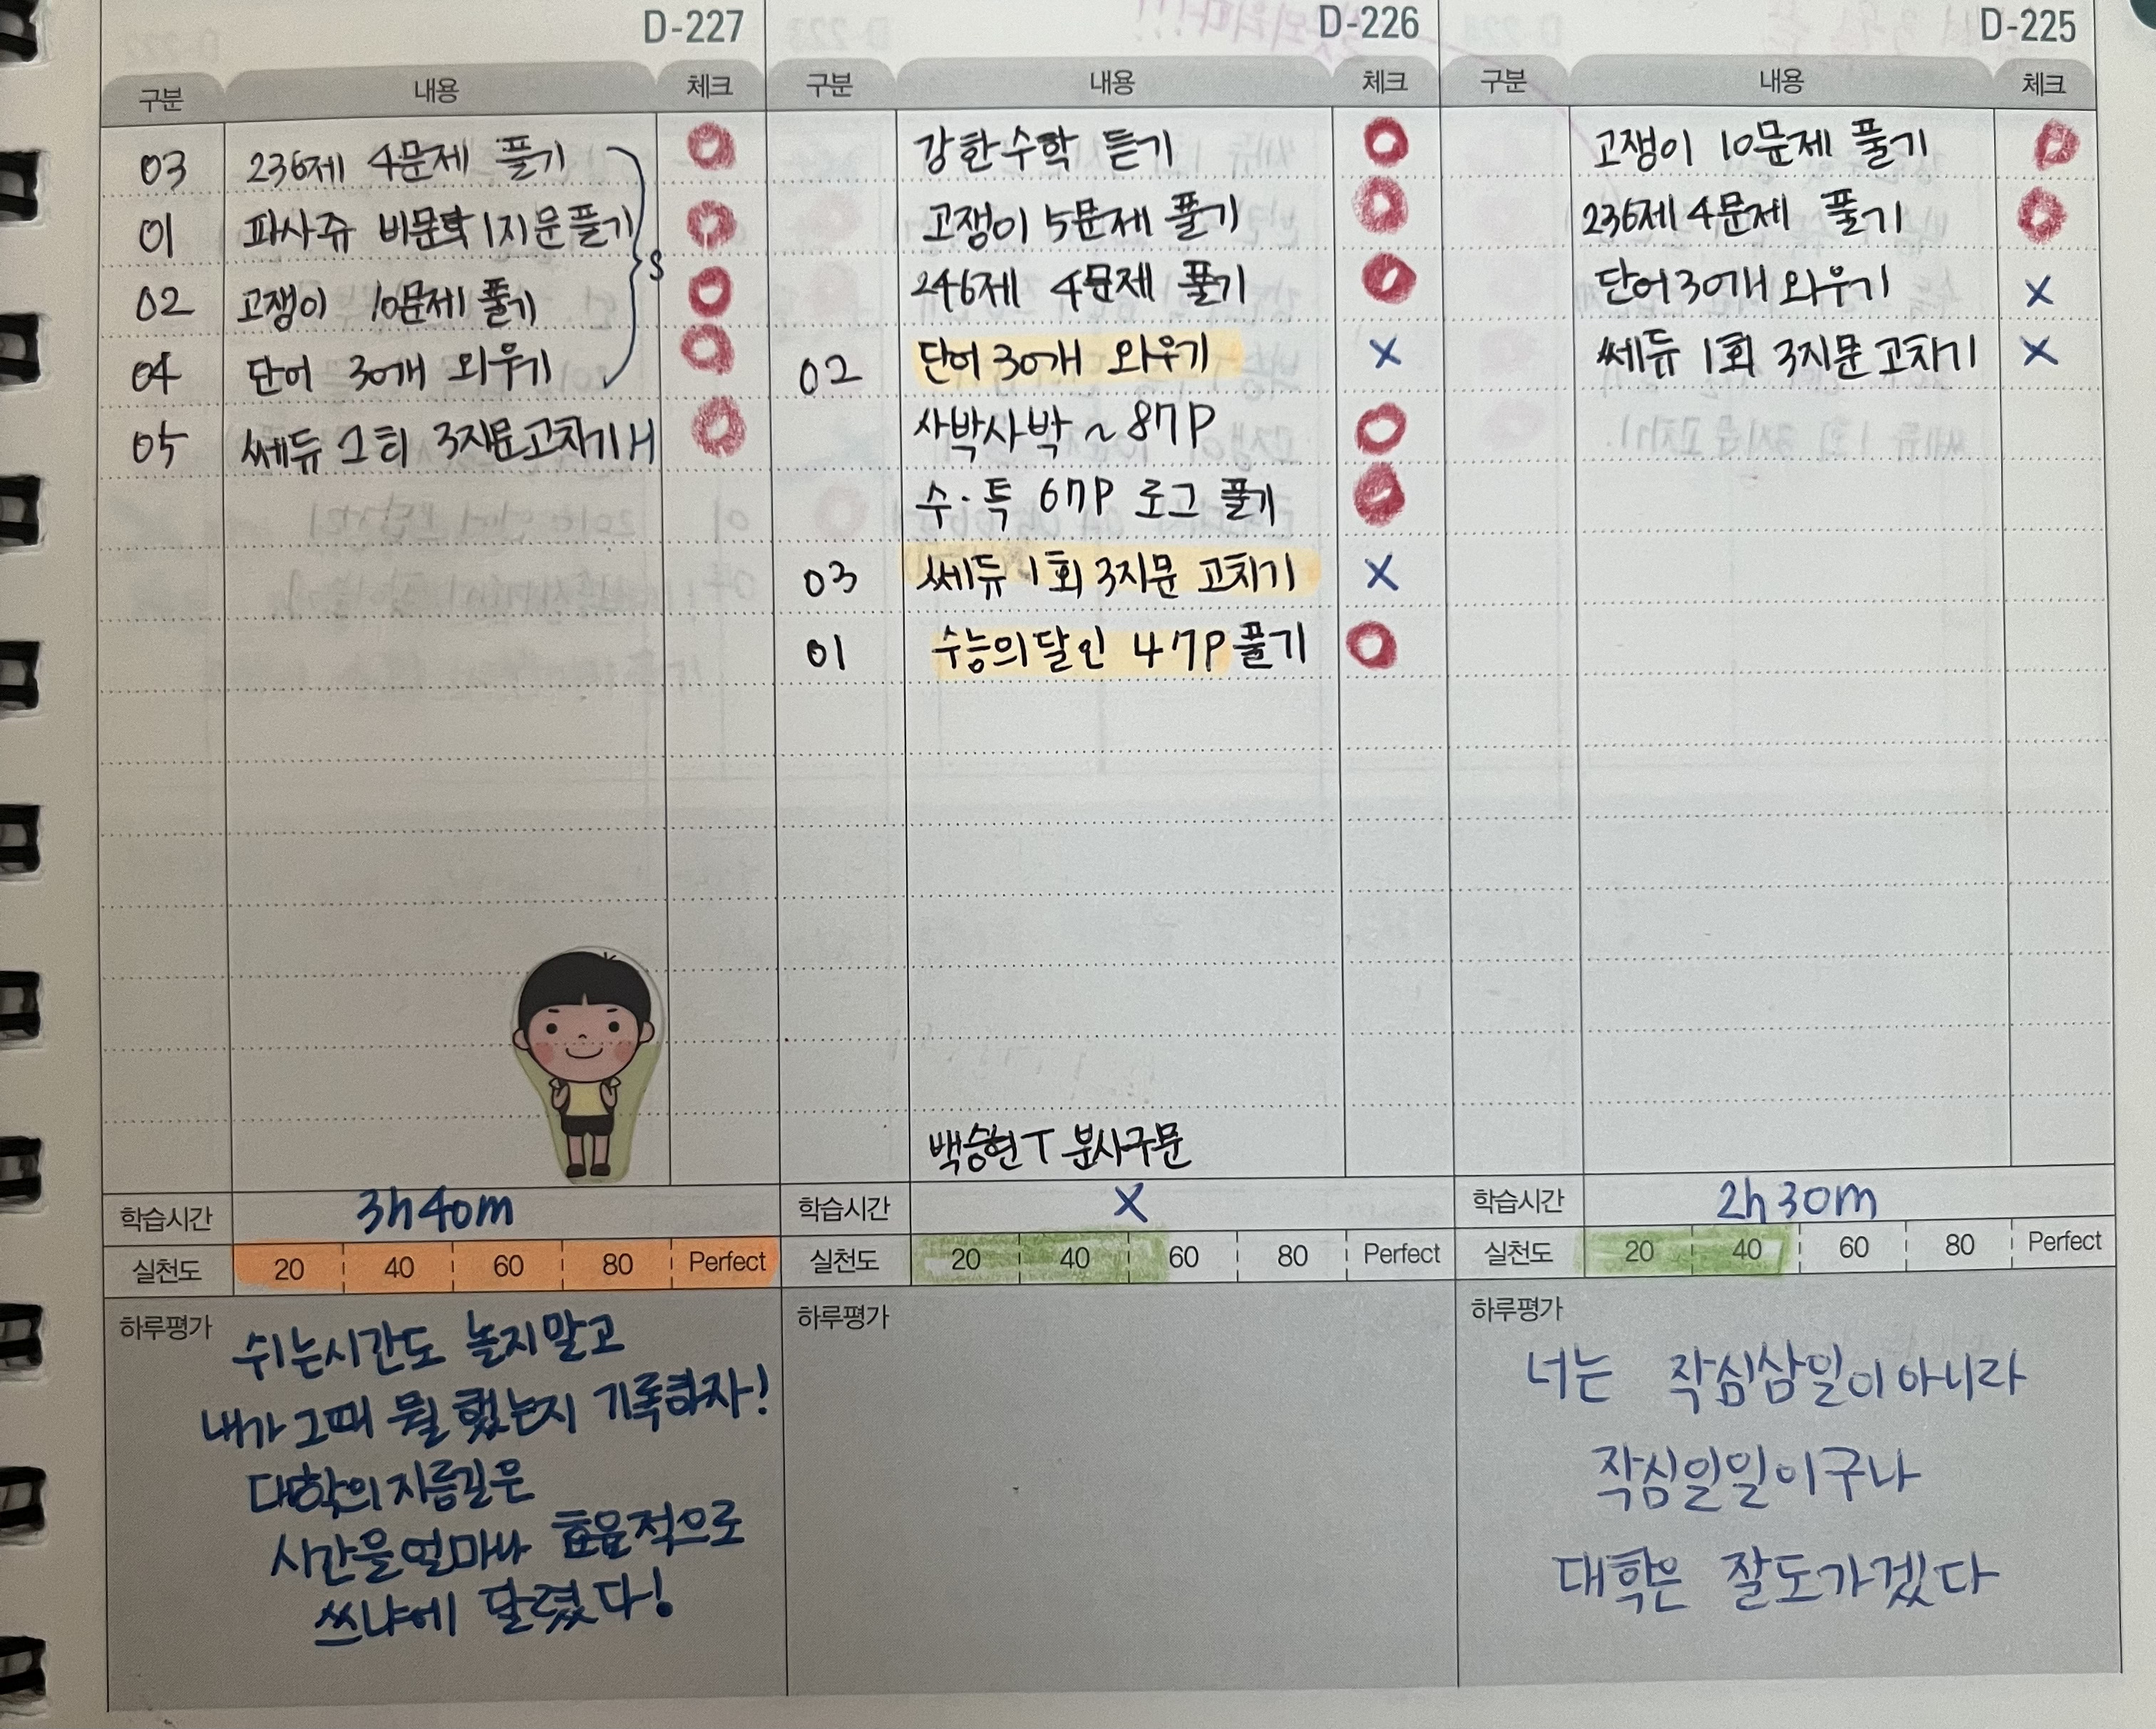 D-227
구분 내용 체크
03 236제 4문제 풀기
01 파사쥬 비문학 1지문 풀기
02 고쟁이 10문제 풀기
04 단어 30개 외우기
05 쎄듀 1회 3지문 고치기 H
S
학습시간 3h 40m
실천도 20 40 60 80 Perfect
하루평가
쉬는시간도 놀지말고
내가 그때 뭘 했는지 기록하자!
대학의 지름길은
시간을 얼마나 효율적으로
쓰냐에 달렸다!
D-226
구분 내용 체크
강한수학 듣기
고쟁이 5문제 풀기
246제 4문제 풀기
02 단어 30개 외우기 X
사박사박 ~ 87P
수·특 67P 로그 풀기
03 쎄듀 1회 3지문 고치기 X
01 수능의달인 47P 풀기
백승현T 분사구문
학습시간 X
실천도 20 40 60 80 Perfect
하루평가
D-225
구분 내용 체크
고쟁이 10문제 풀기
236제 4문제 풀기
단어 30개 외우기 X
쎄듀 1회 3지문 고치기 X
학습시간 2h 30m
실천도 20 40 60 80 Perfect
하루평가
너는 작심삼일이 아니라
작심일일이구나
대학은 잘도가겠다